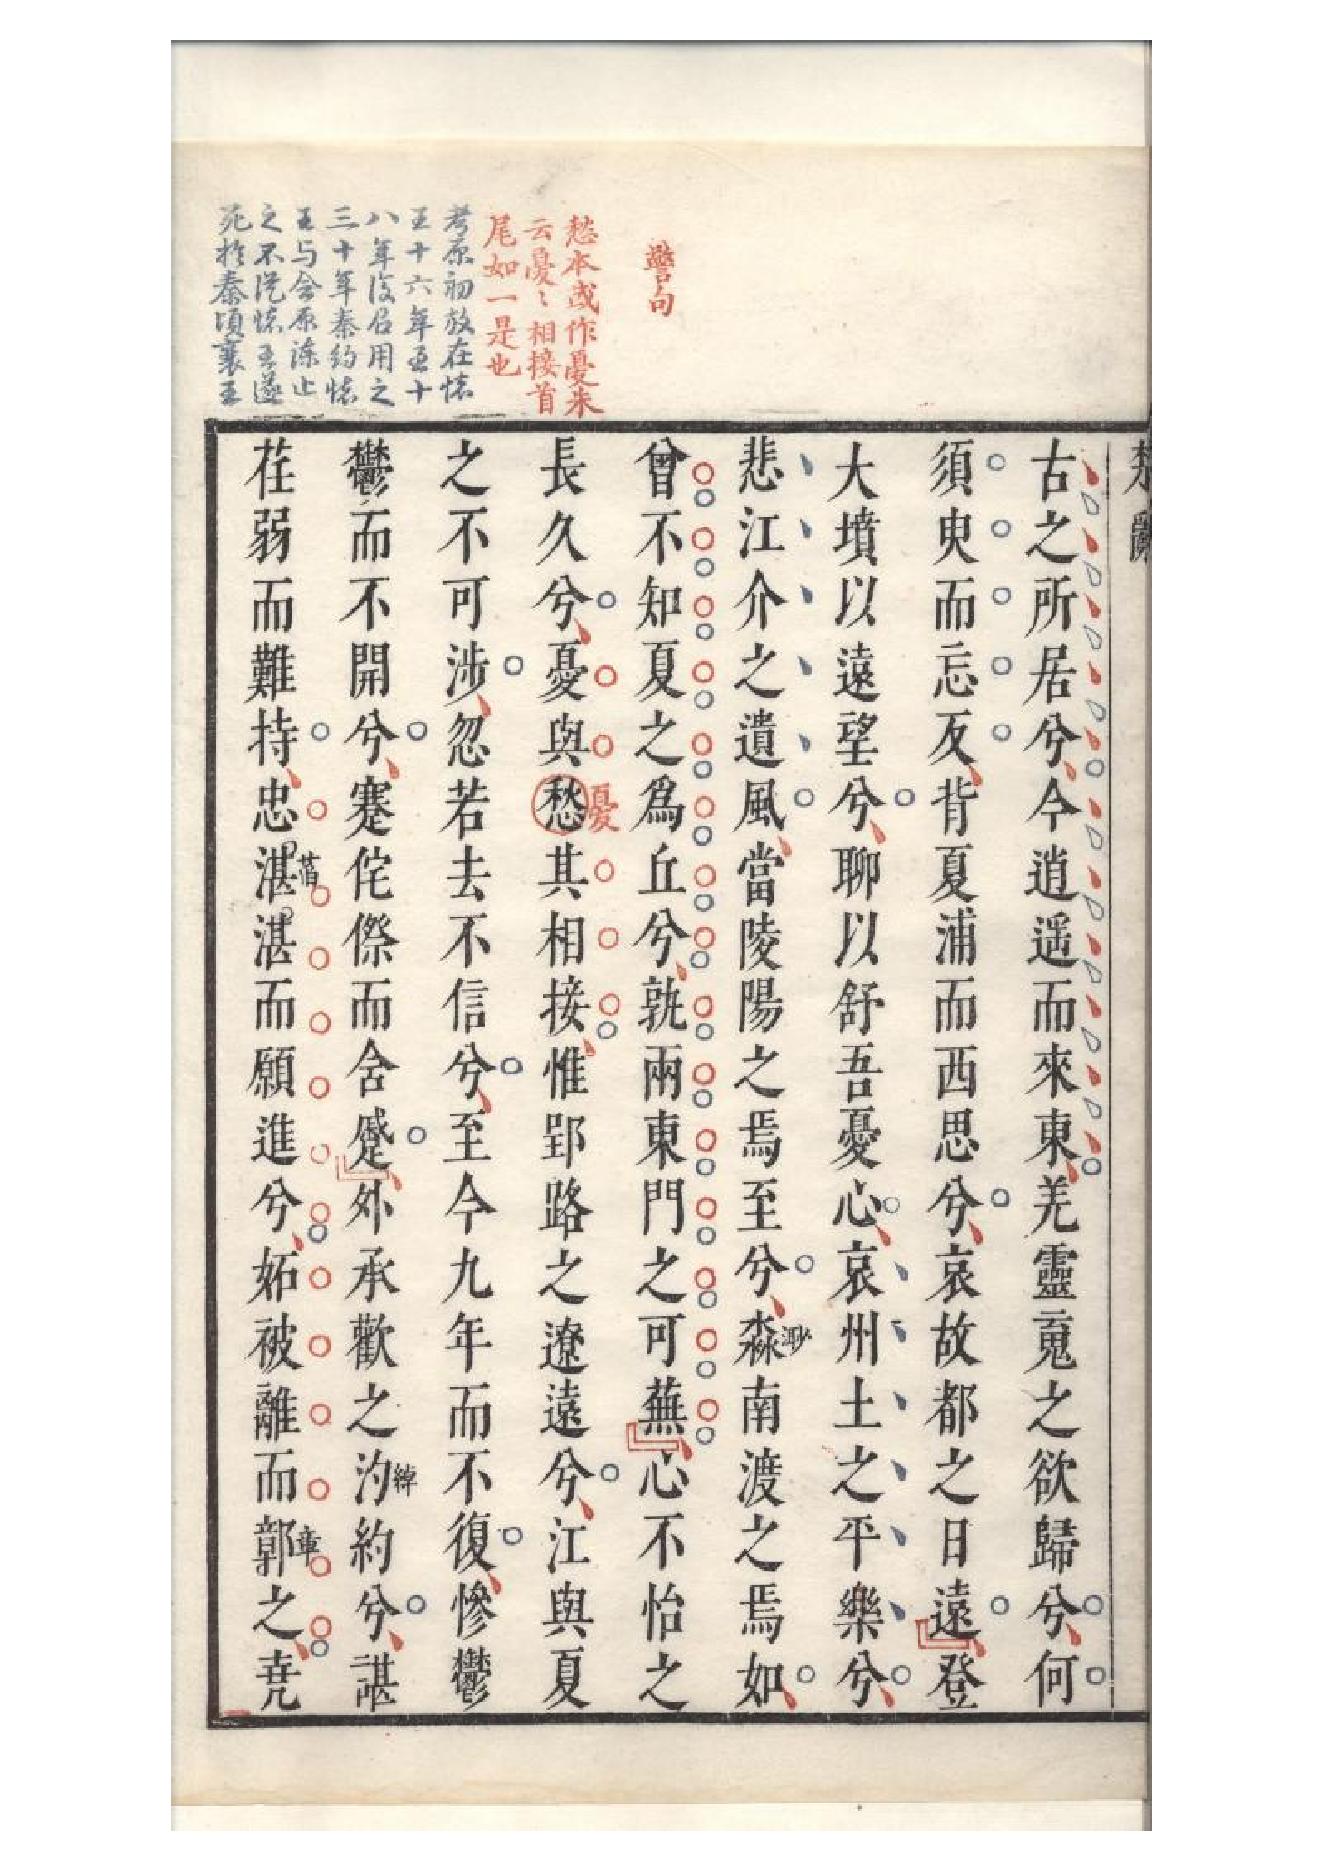 楚辭
警句
愁本或作憂朱
云憂〻相接首
尾如一是也
考原初放在懷
王十六年至十
八年復召用之
三十年秦約懷
王与会原諫止
之不從懷王遂
死於秦頃襄王
古之所居兮今逍遥而來東羌靈䰟之欲歸兮何
須臾而忘反背夏浦而西思兮哀故都之日遠登
大墳以遠望兮聊以舒吾憂心哀州土之平樂兮
悲江介之遺風當陵陽之焉至兮淼南渡之焉如
渺
曾不知夏之為丘兮孰兩東門之可蕪心不怡之
長久兮憂與愁其相接惟郢路之遼遠兮江與夏
憂
之不可涉忽若去不信兮至今九年而不復慘鬱
鬱而不開兮蹇侘傺而含慼外承歡之汋約兮諶
綽
荏弱而難持忠湛湛而願進兮妬被離而鄣之堯
章